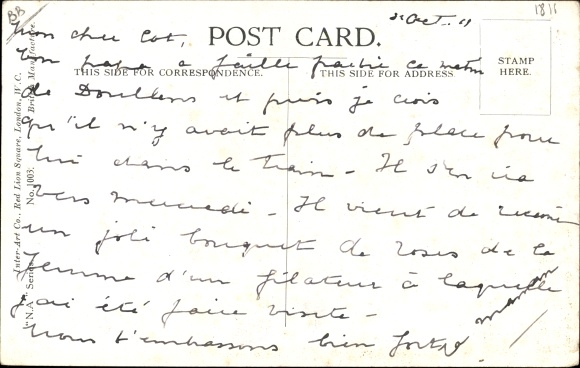 BB
1811
2 Oct. 11
POST CARD.
THIS SIDE FOR CORRESPONDENCE.
THIS SIDE FOR ADDRESS.
STAMP
HERE.
Inter-Art Co., Red Lion Square, London, W.C.
"N.A." Series. No. 1003. British Manufacture.
Mon cher Cot,
Ton papa a failli partir ce matin
de Doullens et puis je crois
qu'il n'y avait plus de place pour
lui dans le train - Il s'en ira
vers mercredi - Il vient de recevoir
un joli bouquet de roses de la
femme d'un filateur à laquelle
j'ai été faire visite -
Nous t'embrassons bien fort
maman